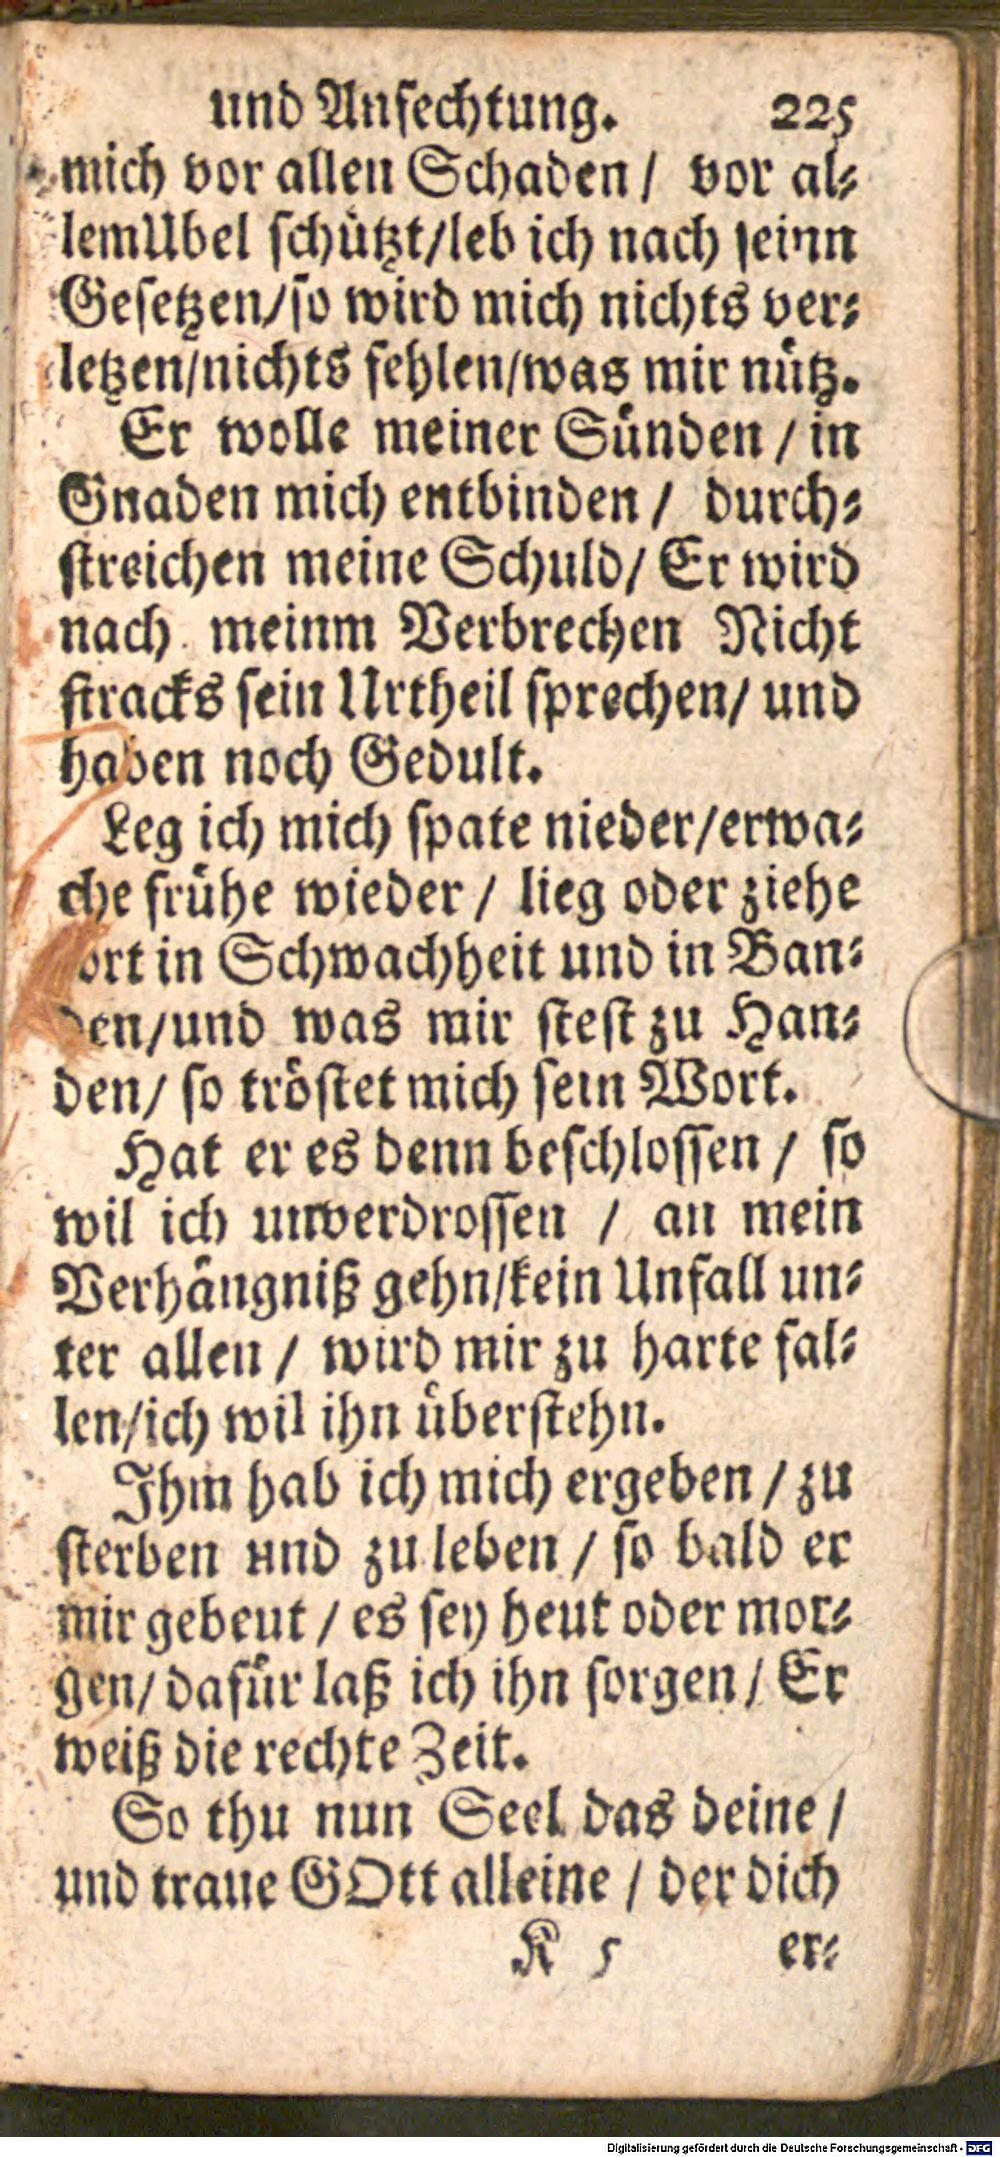 und Anfechtung. 225
mich vor allen Schaden / vor al-
lem Ubel schützt/leb ich nach seinn
Gesetzen/so wird mich nichts ver-
letzen/nichts fehlen/was mir nütz.
Er wolle meiner Sünden / in
Gnaden mich entbinden / durch-
streichen meine Schuld/ Er wird
nach meinm Verbrechen Nicht
stracks sein Urtheil sprechen/ und
haben noch Gedult.
Leg ich mich spate nieder/erwa-
che frühe wieder / lieg oder ziehe
ort in Schwachheit und in Ban-
den/und was mir stest zu Han-
den/ so tröstet mich sein Wort.
Hat er es denn beschlossen / so
wil ich unverdrossen / an mein
Verhängniß gehn/kein Unfall un-
ter allen / wird mir zu harte fal-
len/ich wil ihn überstehn.
Ihm hab ich mich ergeben / zu
sterben und zu leben / so bald er
mir gebeut / es sey heut oder mor-
gen/ dafür laß ich ihn sorgen / Er
weiß die rechte Zeit.
So thu nun Seel das deine /
und traue GOtt alleine / der dich
K 5 er-
Digitalisierung gefördert durch die Deutsche Forschungsgemeinschaft - DFG